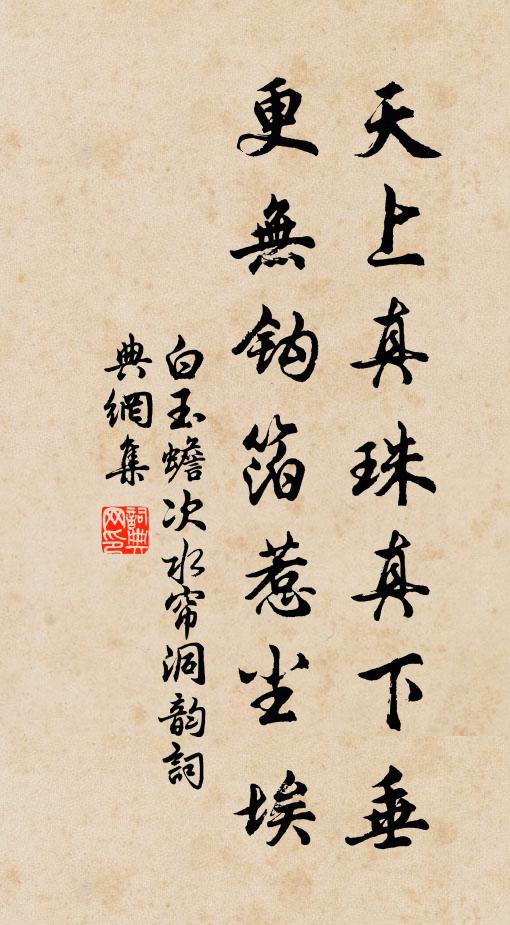 天上真珠真下垂
更無鈎箔惹尘埃
白玉蟾次水帘洞韵詞
典網集
詞典网印